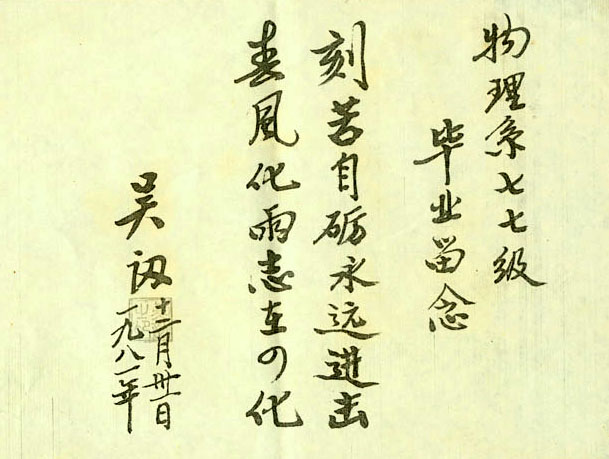 物理系七七级
毕业留念
刻苦自砺永远进击
春风化雨志在四化
吴讱
十二月卅一日
一九八一年